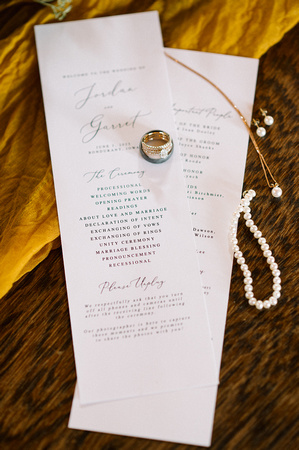 WELCOME TO THE WEDDING OF
Jordan
AND
Garret
JUNE 1,
The Ceremony
PROCESSIONAL
WELCOMING WORDS
OPENING PRAYER
READINGS
ABOUT LOVE AND MARRIAGE
DECLARATION OF INTENT
EXCHANGING OF VOWS
EXCHANGING OF RINGS
UNITY CEREMONY
MARRIAGE BLESSING
PRONOUNCEMENT
RECESSIONAL
Please Unplug
We respectfully ask that you turn
off all phones and cameras until
after the receiving line following
the ceremony
Our photographer is here to capture
these moments and we promise
to share the photos with you!
People
OF THE BRIDE
OF HONOR
OF HONOR
Wilson